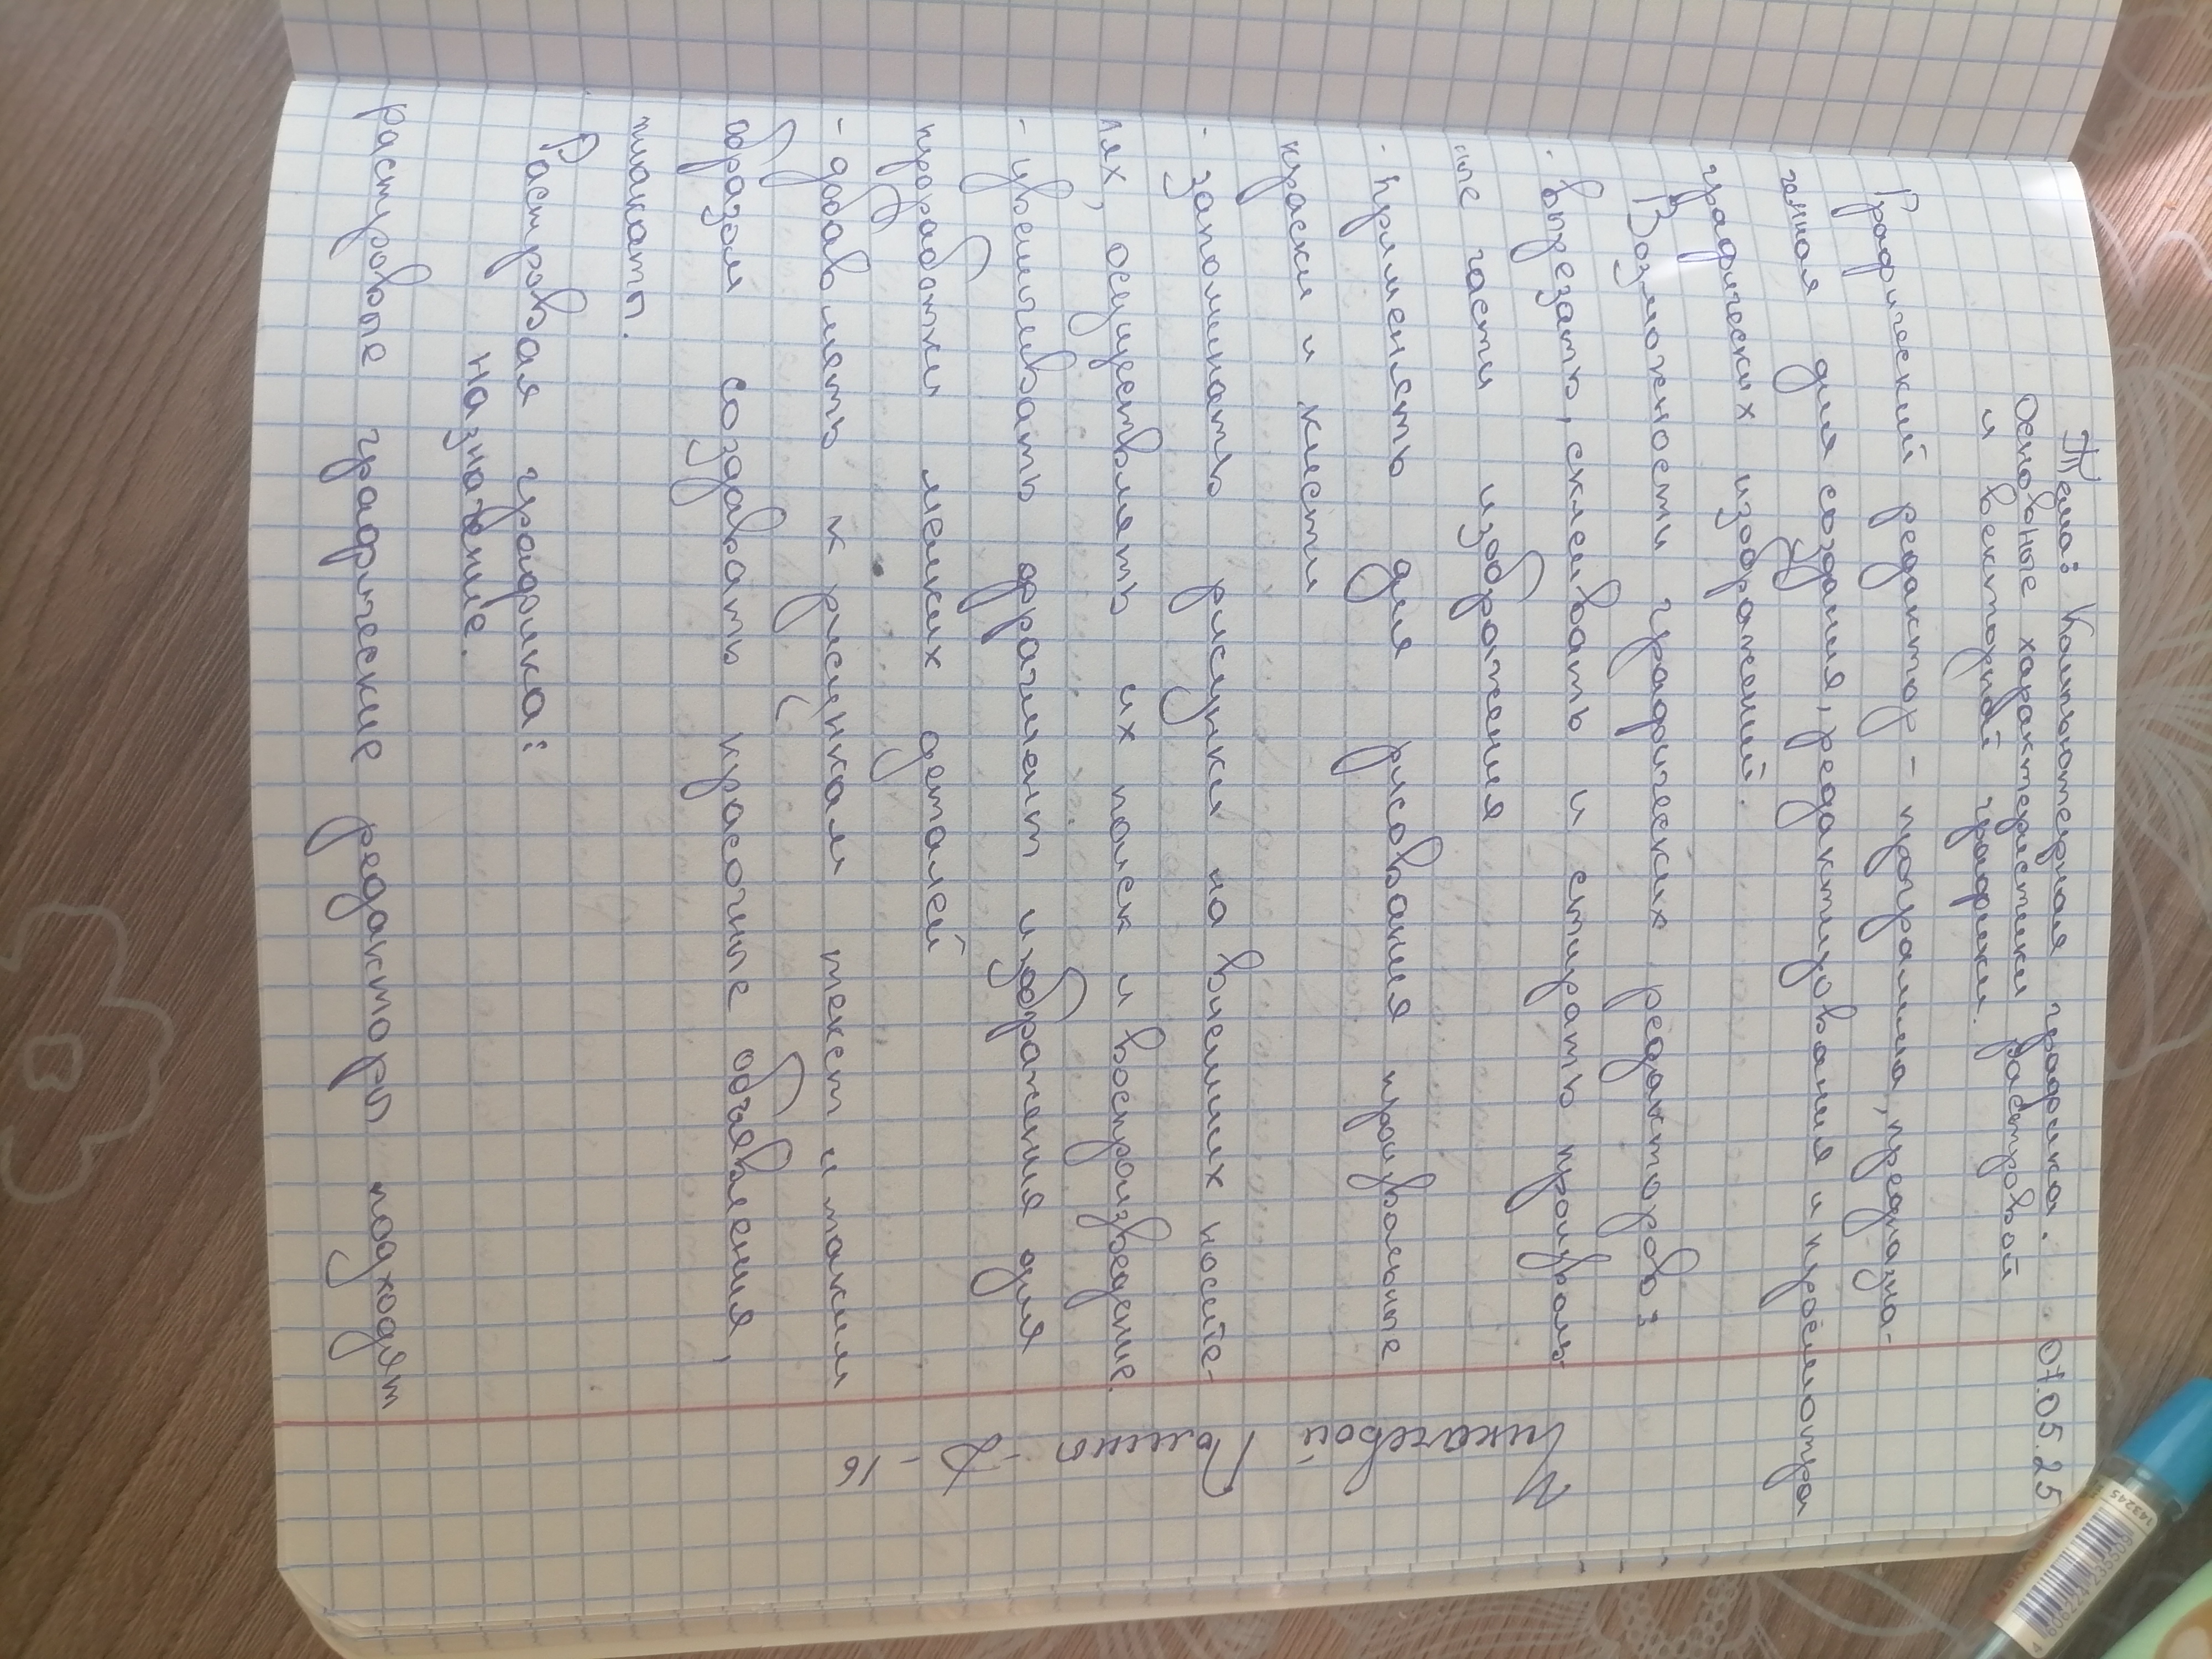 07.05.25
Тема: Компьютерная графика.
Основные характеристики растровой
и векторной графики.
Графический редактор - программа, предназна-
ченная для создания, редактирования и просмотра
графических изображений.
Возможности графических редакторов:
- вырезать, склеивать и стирать произволь
ные части изображения
- применять для рисования произвольные
краски и кисти
- запоминать рисунки на внешних носите-
лях, осуществлять их поиск и воспроизведение.
- увеличивать фрагмент изображения для
проработки мелких деталей
- добавлять к рисункам текст и таким
образом создавать красочные объявления,
плакаты.
Растровая графика:
назначение.
растровые графические редакторы подходят
Полина - Д - 16
143245
4 606224 235509